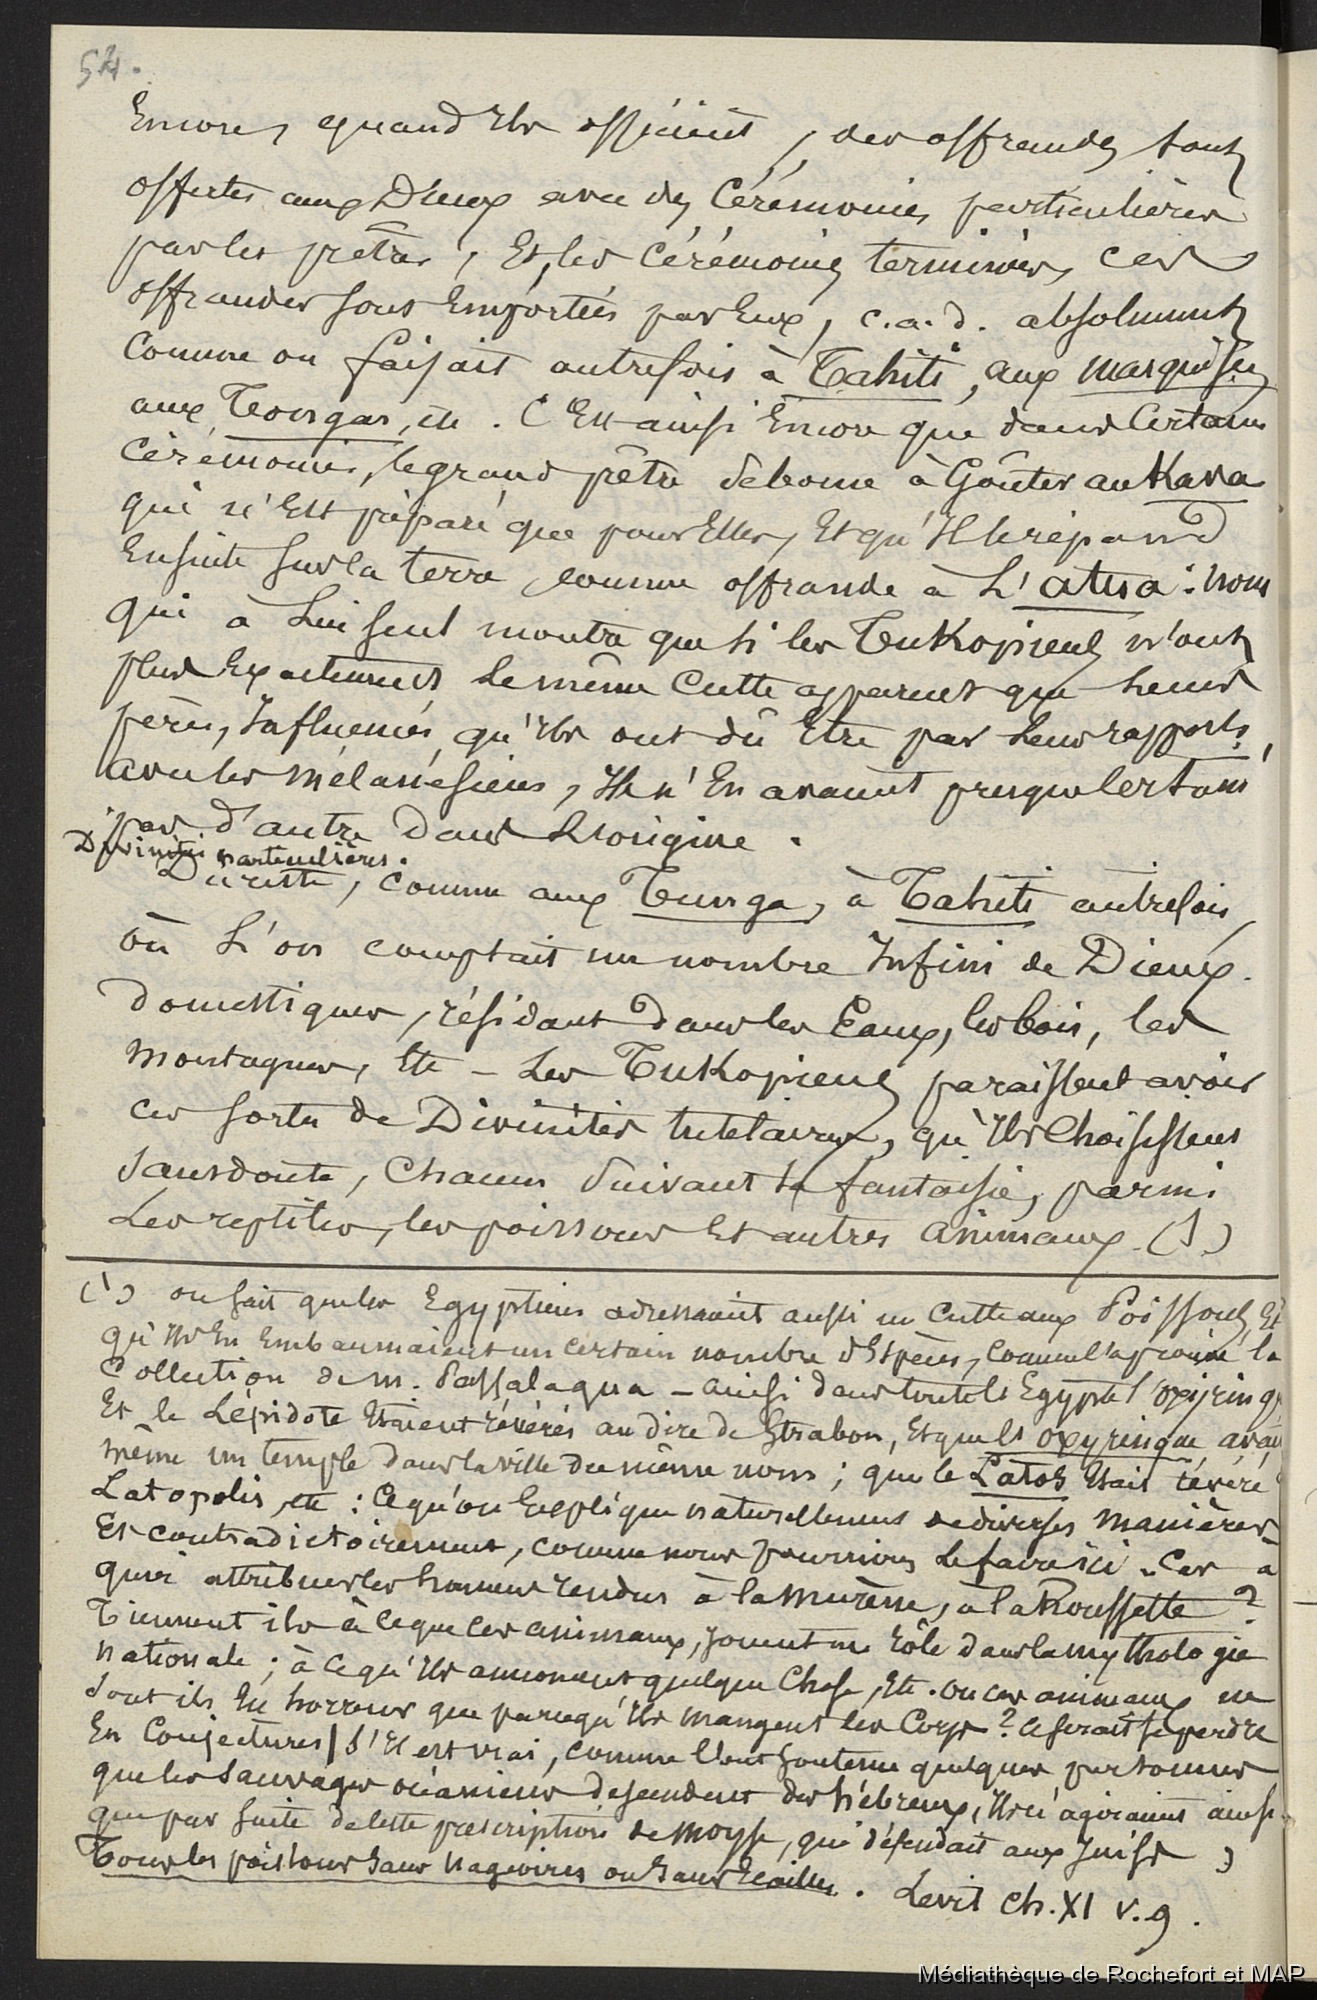 54.
Encore, quand ils officient, des offrandes sont
offertes aux Dieux avec des Cérémonies particulières
par les prêtres, Et, les Cérémonies terminées, ces
offrandes sont Emportées par Eux, c.a.d. absolument
Comme on faisait autrefois à Tahiti, aux marquises
aux Tongas, etc. C'Est ainsi Encore que dans Certaines
Cérémonies, le grand prêtre se borne à Goûter au Kava
qui n'Est préparé que pour Elles, Et qu'Il répand
Ensuite sur la terre comme offrande à L'atua :
qui à Lui seul montre que si les Tukopiens n'ont
plus Exactement le même Culte apparent que leurs
pères, Influencés qu'Ils ont dû Etre par Leurs rapports
avec les Mélanésiens, Ils n'En avaient presque certaint
pas d'autre dans L'origine.
Divinités particulières.
Du reste, comme aux Tunga, à Tahiti autrefois,
où L'on comptait un nombre Infini de Dieux
domestiques, résidant dans les Eaux, les bois, les
montagnes, Etc – Les Tukopiens paraissent avoir
ces sortes de Divinités tutélaires, qu'Ils Choisissent
sans doute, Chacun suivant sa fantaisie, parmi
Les reptiles, les poissons Et autres animaux (1)
(1) on sait que les Egyptiens adressaient aussi un Culte aux Poissons, Et
qu'Ils En Embaumaient un certain nombre d'Espèces, Comme l'a prouvé la
Collection de m. Passalaqua – ainsi dans toute l'Egypte l'oxyrinq
Et le Lépidote Etaient révérés au dire de Strabon, Et que l'oxyrinque avai
même un temple dans la ville du même nom ; que le Latos Etait révéré
Latopolis, etc : Ce qu'on Explique naturellement de diverses manières
Et contradictoirement, comme nous pourrions Le faire ici. Car à
quoi attribuer les honneurs rendus à la Murène, à la Roussette ?
Tiennent ils à Ce que Ces animaux, jouent un rôle dans la mythologie
nationale ; à Ce qu'Ils annoncent quelque Chose, Etc. ou ces animaux ne
sont ils En horreur que parcequ'Ils mangent les Corps ? Ce serait se perdre
En Conjectures / S'Il est vrai, comme l'ont soutenu quelques personnes
que les Sauvages océaniens descendent des hébreux, Ils n'agiraient ainsi
que par suite de Cette prescription de Moyse, qui défendait aux Juifs
Tous les poissons sans nageoires ou sans Ecailles. Levit Ch. XI v. 9.
Médiathèque de Rochefort et MAP